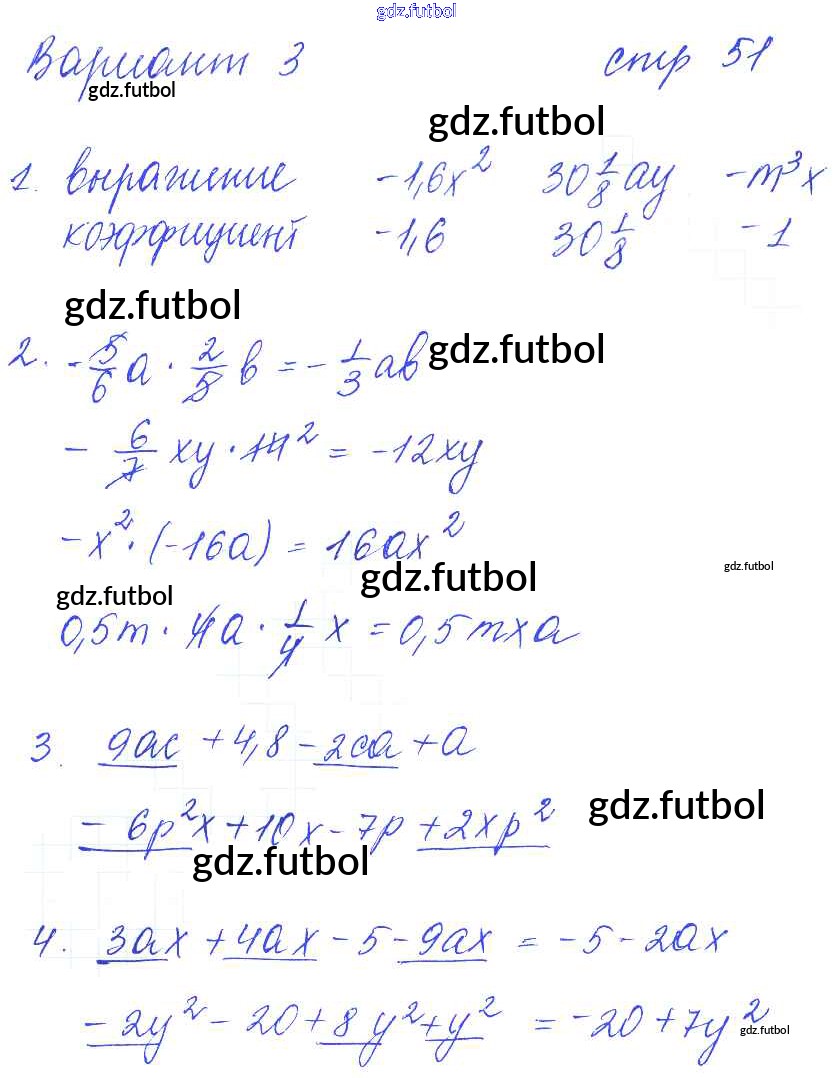 gdz.futbol
Вариант 3 стр 51
gdz.futbol
gdz.futbol
1. выражение -1,6x² 30 1/8 ay -m³x
коэффициент -1,6 30 1/8 -1
gdz.futbol
gdz.futbol
2. -5/6 a · 2/5 b = -1/3 ab
- 6/7 xy · 14² = -12xy
-x² · (-16a) = 16ax²
gdz.futbol
gdz.futbol
gdz.futbol
0,5m · 4a · 1/4 x = 0,5mxa
3. 9ac + 4,8 - 2ca + a
- 6p²x + 10x - 7p + 2xp²
gdz.futbol
gdz.futbol
4. 3ax + 4ax - 5 - 9ax = -5 - 2ax
- 2y² - 20 + 8y² + y² = -20 + 7y²
gdz.futbol